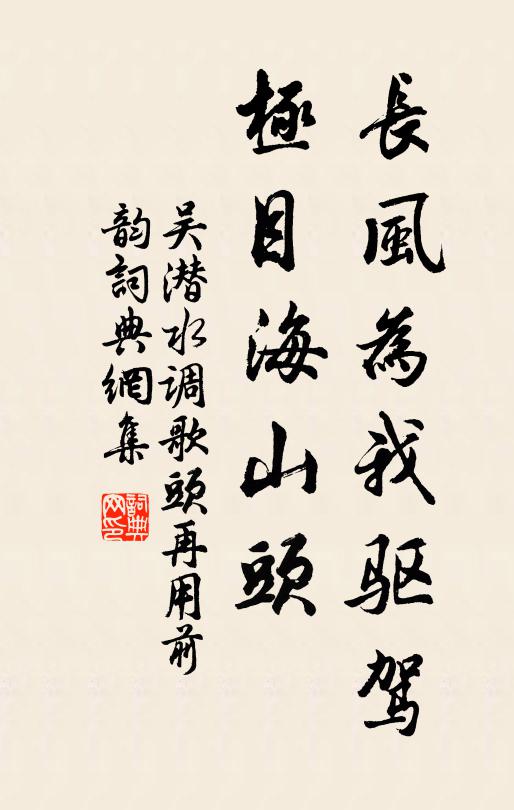 長風為我驱駕
極目海山頭
吴潜水调歌頭再用前
韵詞典網集
詞典
网印